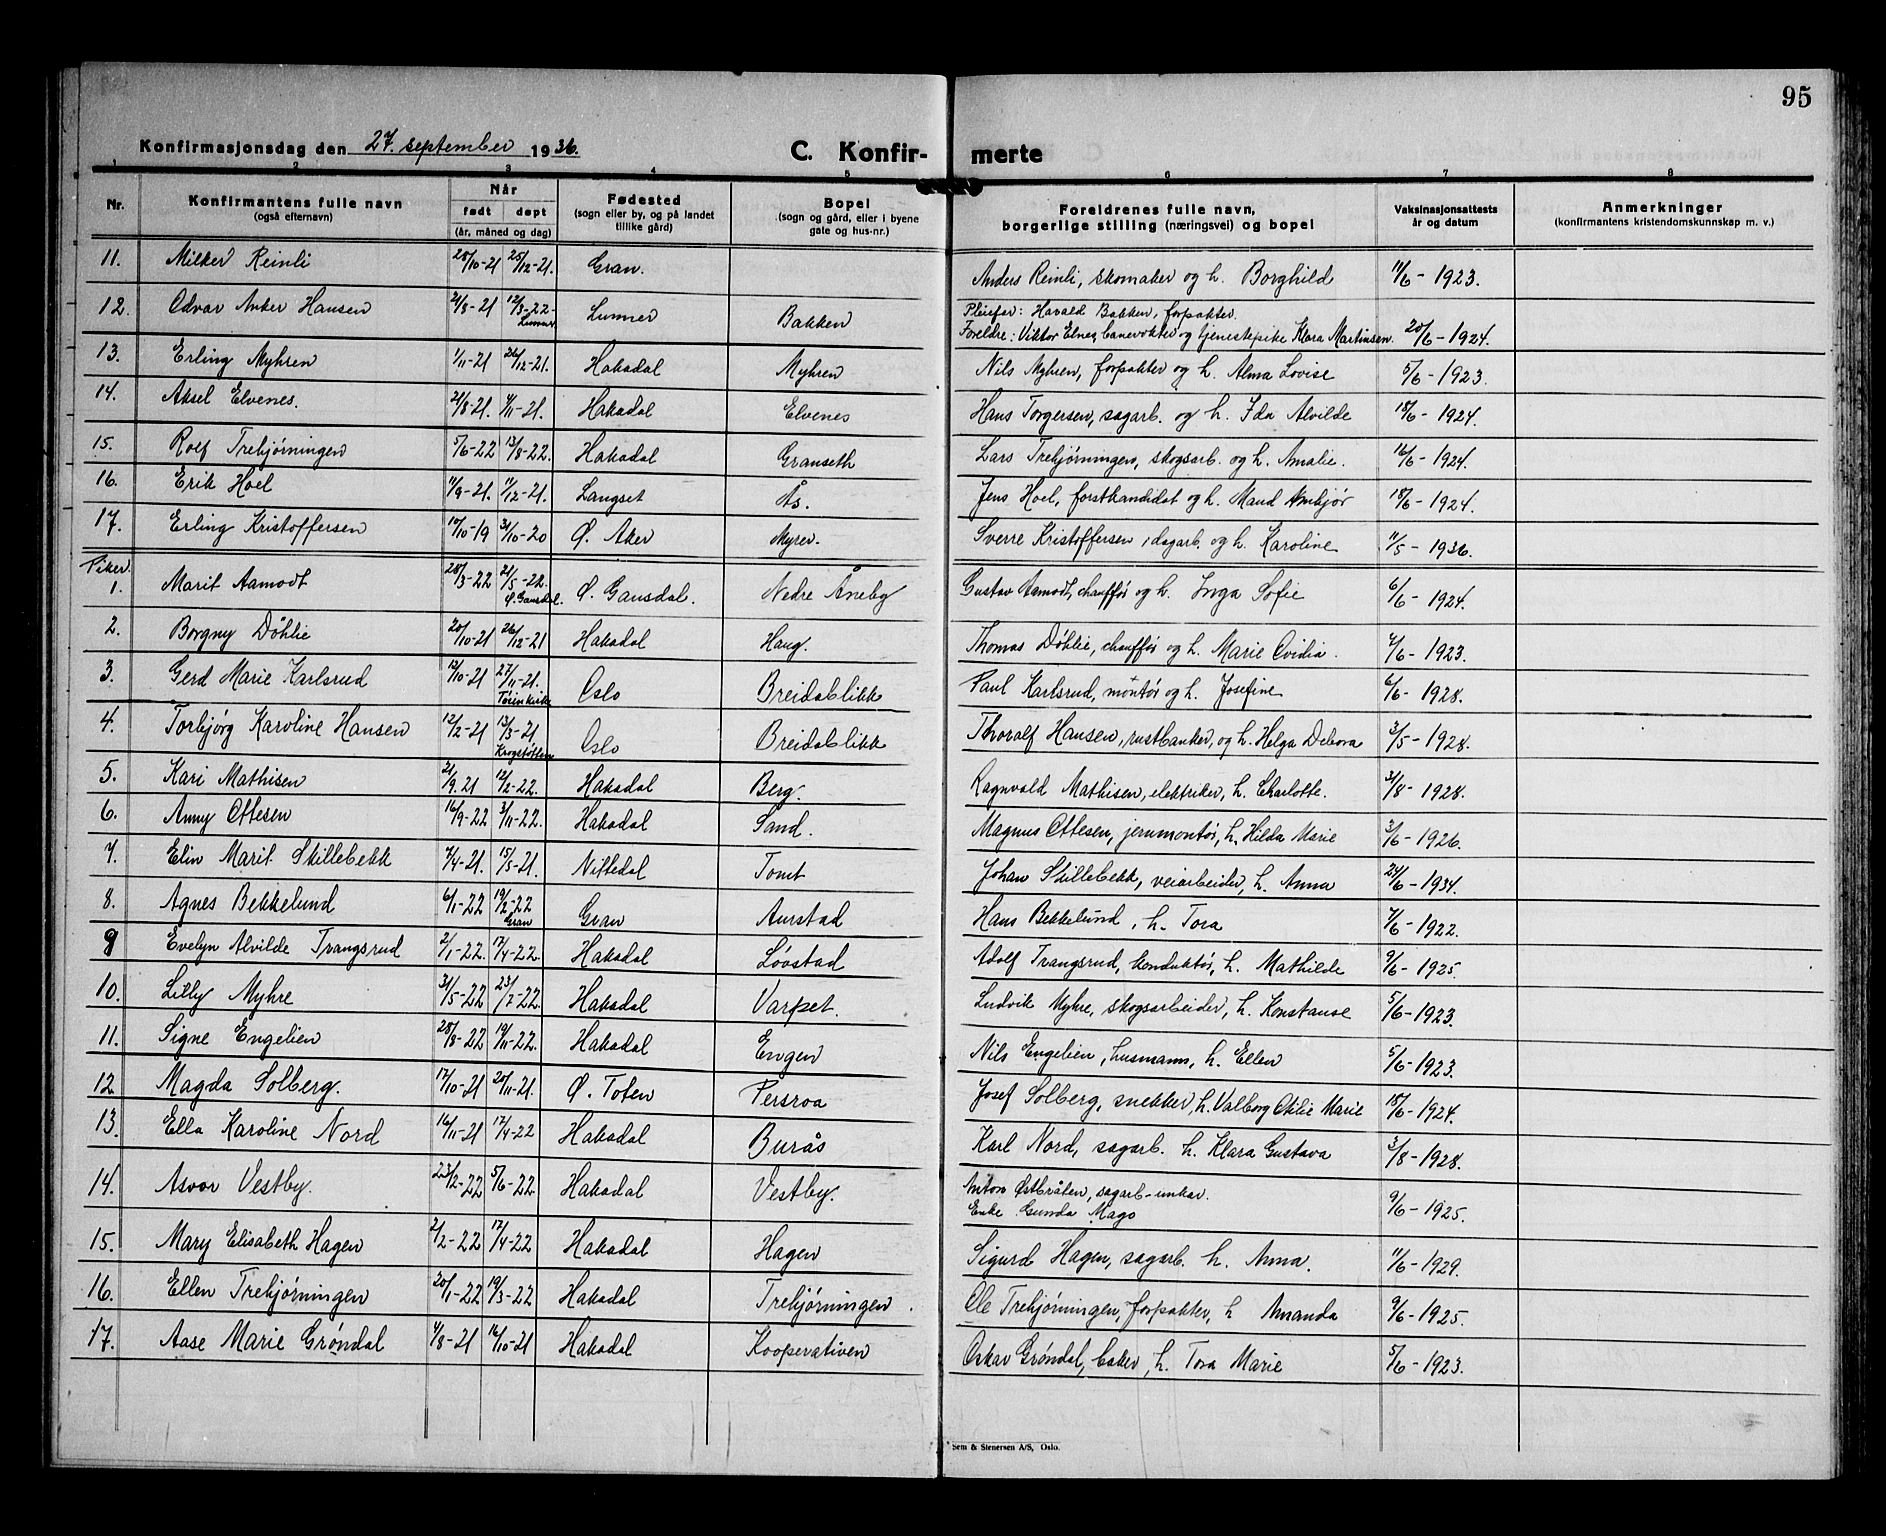 95
Konfirmasjonsdag den 27. september 1936.
C. Konfir- merte
1 2 3 4 5 6 7 8
Nr. Konfirmantens fulle navn (også efternavn) Når født døpt (år, måned og dag) Fødested (sogn eller by, og på landet tillike gård) Bopel (sogn og gård, eller i byene gate og hus-nr.) Foreldrenes fulle navn, borgerlige stilling (næringsvei) og bopel Vaksinasjonsattests år og datum Anmerkninger (konfirmantens kristendomskunnskap m. v.)
11. Milker Reinli 28/10-21 25/12-21. Gran. Anders Reinli, skomaker og h. Borghild 11/6-1923.
12. Odvar Anker Hansen 21/8-21 12/3-22- Lunner Lunner Bakken Pleiefar: Harald Bakken, forpakter.
Foreldre: Viktor Elnes, banevokter og tjenestepike Klara Martinsen. 20/6-1924.
13. Erling Myhren 1/11-21 26/12-21. Hakadal Myhren Nils Myhren, forpakter og h. Alma Lovise 5/6-1923.
14. Aksel Elvenes. 21/8-21. 6/11-21. Hakadal Elvenes Hans Torgersen, sagarb. og h. Ida Alvilde 18/6-1924.
15. Rolf Trehjørningen 5/6-22 13/8-22. Hakadal Granseth Lars Trehjørningen, skogsarb. og h. Amalie. 16/6-1924.
16. Erik Hoel 11/9-21. 11/12-21. Langset Ås. Jens Hoel, forstkandidat og h. Maud Ambjør 18/6-1924.
17. Erling Kristoffersen 17/10-19 31/10-20 Ø. Aker Myrer. Sverre Kristoffersen, dagarb. og h. Karoline 11/5-1936.
Piker.
1. Marit Aamodt 28/3-22 21/5-22. Ø. Gausdal. Ø. Gausdal. Nedre Åneby Gustav Aamodt, chaufför og h. Inga Sofie 6/6-1924.
2. Borgny Döhlie 20/10-21 26/12-21 Hakadal Haug. Thomas Döhlie, chaufför og h. Marie Ovidia. 7/6-1923.
3. Gerd Marie Karlsrud 12/10-21 27/11-21. Tøienkirke Oslo Breidablikk Paul Karlsrud, montör og h. Josefine 6/6-1928.
4. Torbjørg Karoline Hansen 12/2-21 13/3-21 Krogstøtten Oslo Breidablikk Thoralf Hansen, rustbanker, og h. Helga Debora 3/5-1928.
5. Kari Mathisen 21/9.21 12/2-22. Hakadal Berg. Ragnvald Mathisen, elektriker, h. Charlotte. 31/8-1928.
6. Anny Ottesen 16/9-22 3/11-22. Hakadal Sand. Magnus Ottesen, jernmontör, h. Hilda Marie 3/6-1926.
7. Elin Marit Skillebekk 7/4-21. 15/5-21. Nittedal Tomt Johan Skillebekk, veiarbeider, h. Anna 24/6-1934.
8. Agnes Bekkelund 6/1-22 19/2-22 Gran Gran Aurstad Hans Bekkelund, h. Tora 7/6-1922.
9 Evelyn Alvilde Trangsrud 2/1-22. 17/4-22. Hakadal Lövstad Adolf Trangsrud, konduktör, h. Mathilde 9/6-1925.
10. Lilly Myhre 31/5-22 23/7-22. Hakadal Varpet. Ludvik Myhre, skogsarbeider, h. Konstanse 5/6-1923.
11. Signe Engelien 28/8-22 19/11-22. Hakadal Engen Nils Engelien, husmann, h. Ellen 5/6-1923.
12. Magda Solberg. 17/10-21 20/11-21. Ø. Toten Persroa Josef Solberg, snekker, h. Valborg Otilie Marie 18/6-1924.
13. Ella Karoline Nord 16/11-21 17/4-22 Hakadal Burås Karl Nord, sagarb. h. Klara Gustava 3/8-1928.
14. Asvor Vestby. 23/2-22 5/6-22 Hakadal Vestby. Anton Østbråten, sagarb-unkar.
Enke Gunda Mago 9/6-1925.
15. Mary Elisabeth Hagen 2/2-22 17/4-22 Hakadal Hagen Sigurd Hagen, sagarb. h. Anna. 11/6-1929.
16. Ellen Trehjørningen 20/1-22 19/3-22 Hakadal Trehjørningen. Ole Trehjørningen, forpakter, h Amanda 9/6-1925.
17. Aase Marie Grøndal 4/8-21 16/10-21 Hakadal Kooperativen Oskar Gröndal, baker, h. Tora Marie 5/6-1923.
Sem & Stenersen A/S, Oslo.